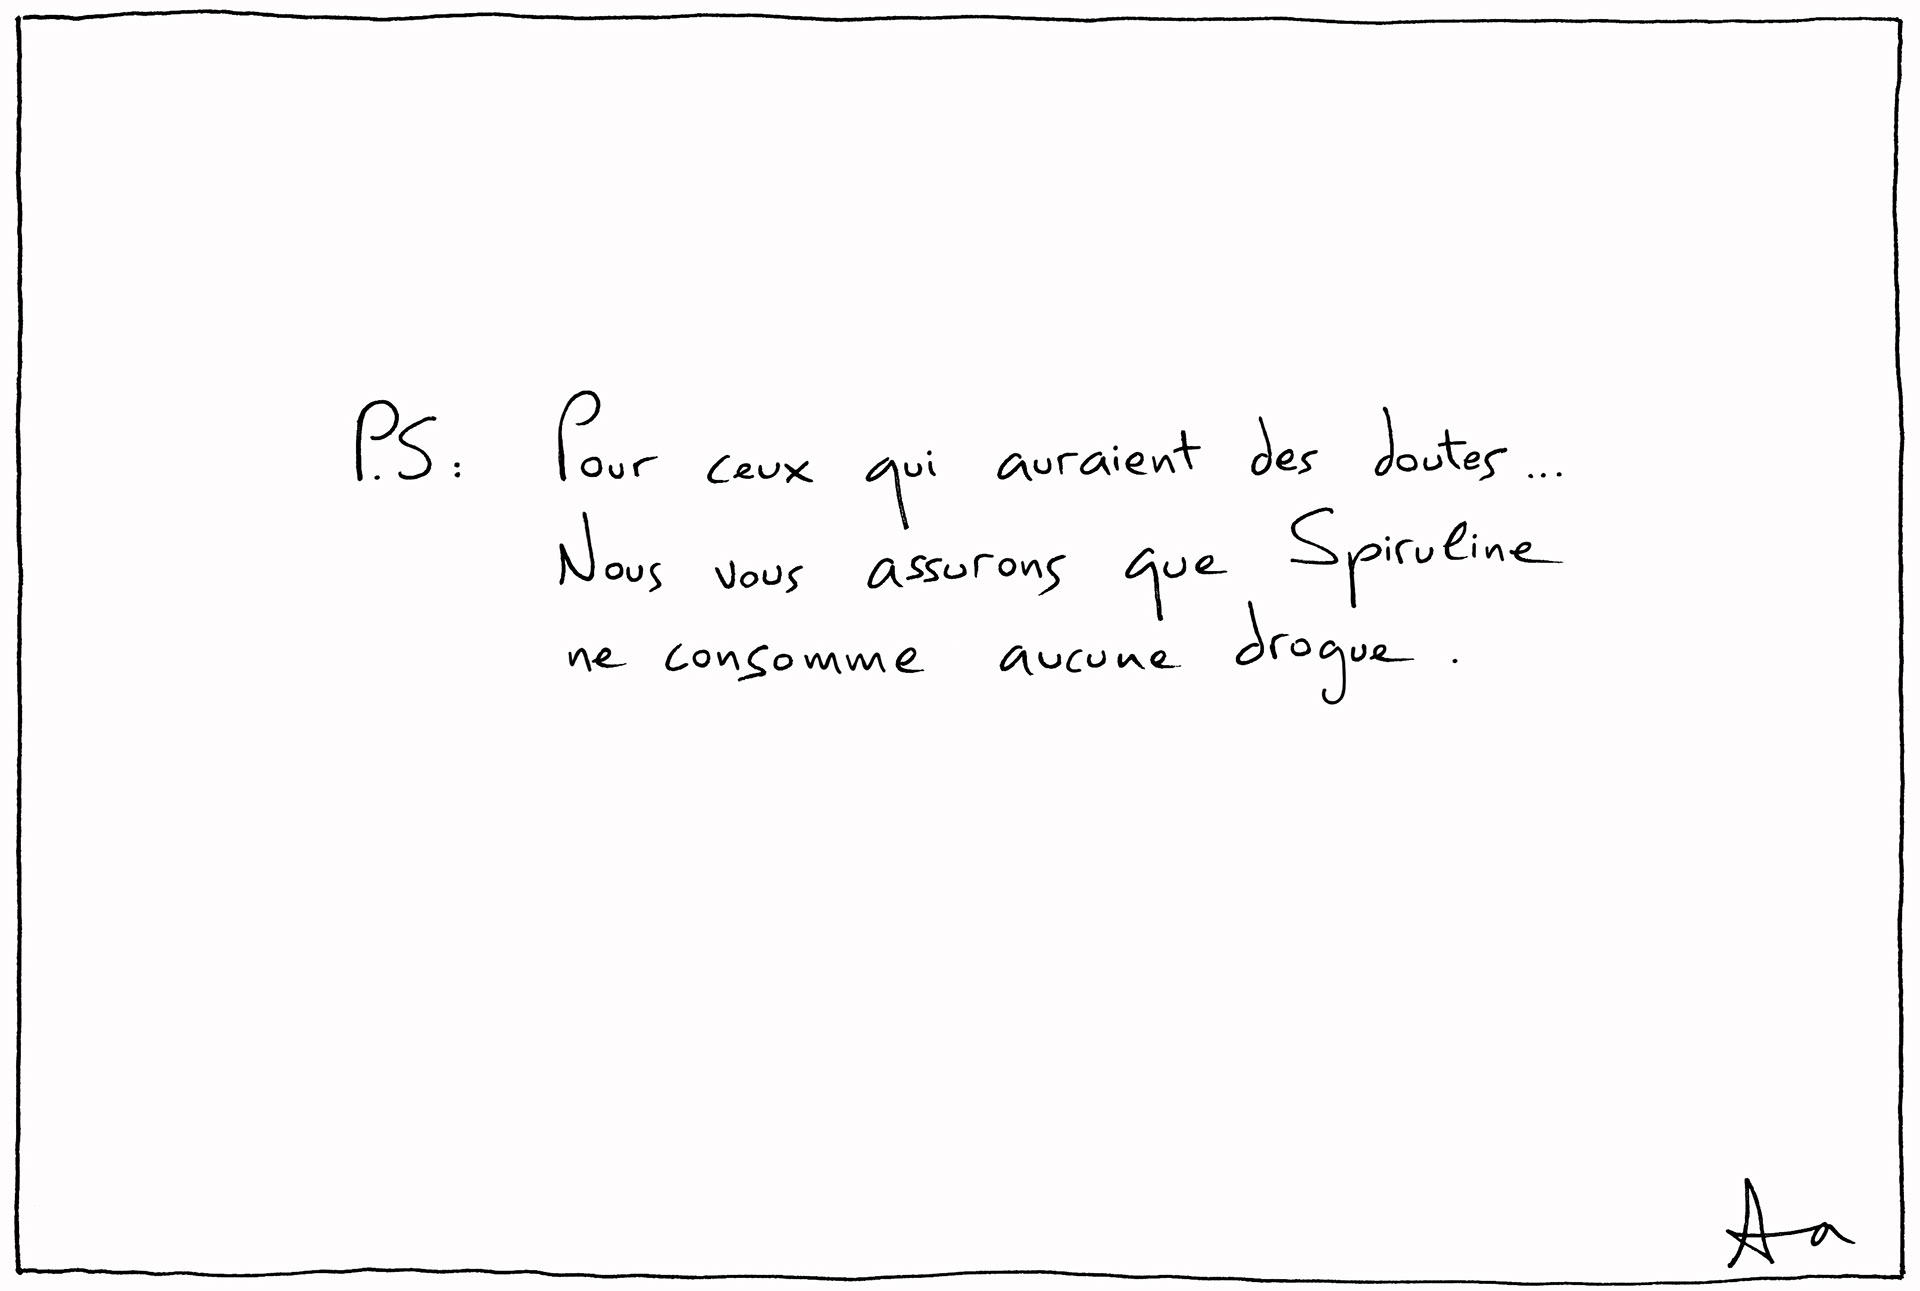 P.S: Pour ceux qui auraient des doutes...
Nous vous assurons que Spiruline
ne consomme aucune drogue.
Aa